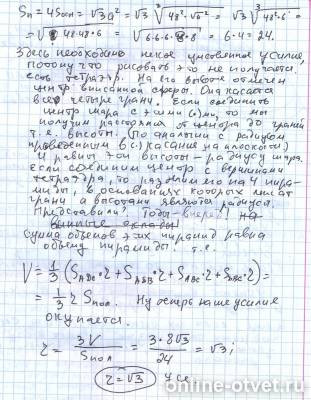 Sп = 4Sосн = √3 a² = √3 ∛48²·√6² = √3 ∛48²·6 =
= √ 48·48·6 = √6·6·6·8·8 = 6·4 = 24.
Здесь необходимо некое умственное усилие,
потому что рисовать это не получается,
есть тетраэдр. На его высоте отмечен
центр вписанной сферы. Она касается
всех четыре грани. Если соединить
центр шара с этими (·)ми, то мы
получим расстояния от центра до граней
т.е. высоты. (По аналогии с радиусом
проведенным в (·) касания на плоскости)
И равны эти высоты - радиусу шара.
Если соединим центр с вершинами
тетраэдра, то разобьем его на 4 пира-
миды, в основаниях которых лежат
грани а высотами являются радиусы.
Представили? Тогда - вперед! на
сумма объемов этих пирамид равна
объему пирамиды. т.е.
V = 1/3 (S·r + S·r + S·r + S·r) =
= 1/3 r Sпол. Ну теперь наше усилие
окупается.
r = 3V/Sпол = 3·8√3/24 = √3;
r = √3 Усе
online-otvet.ru